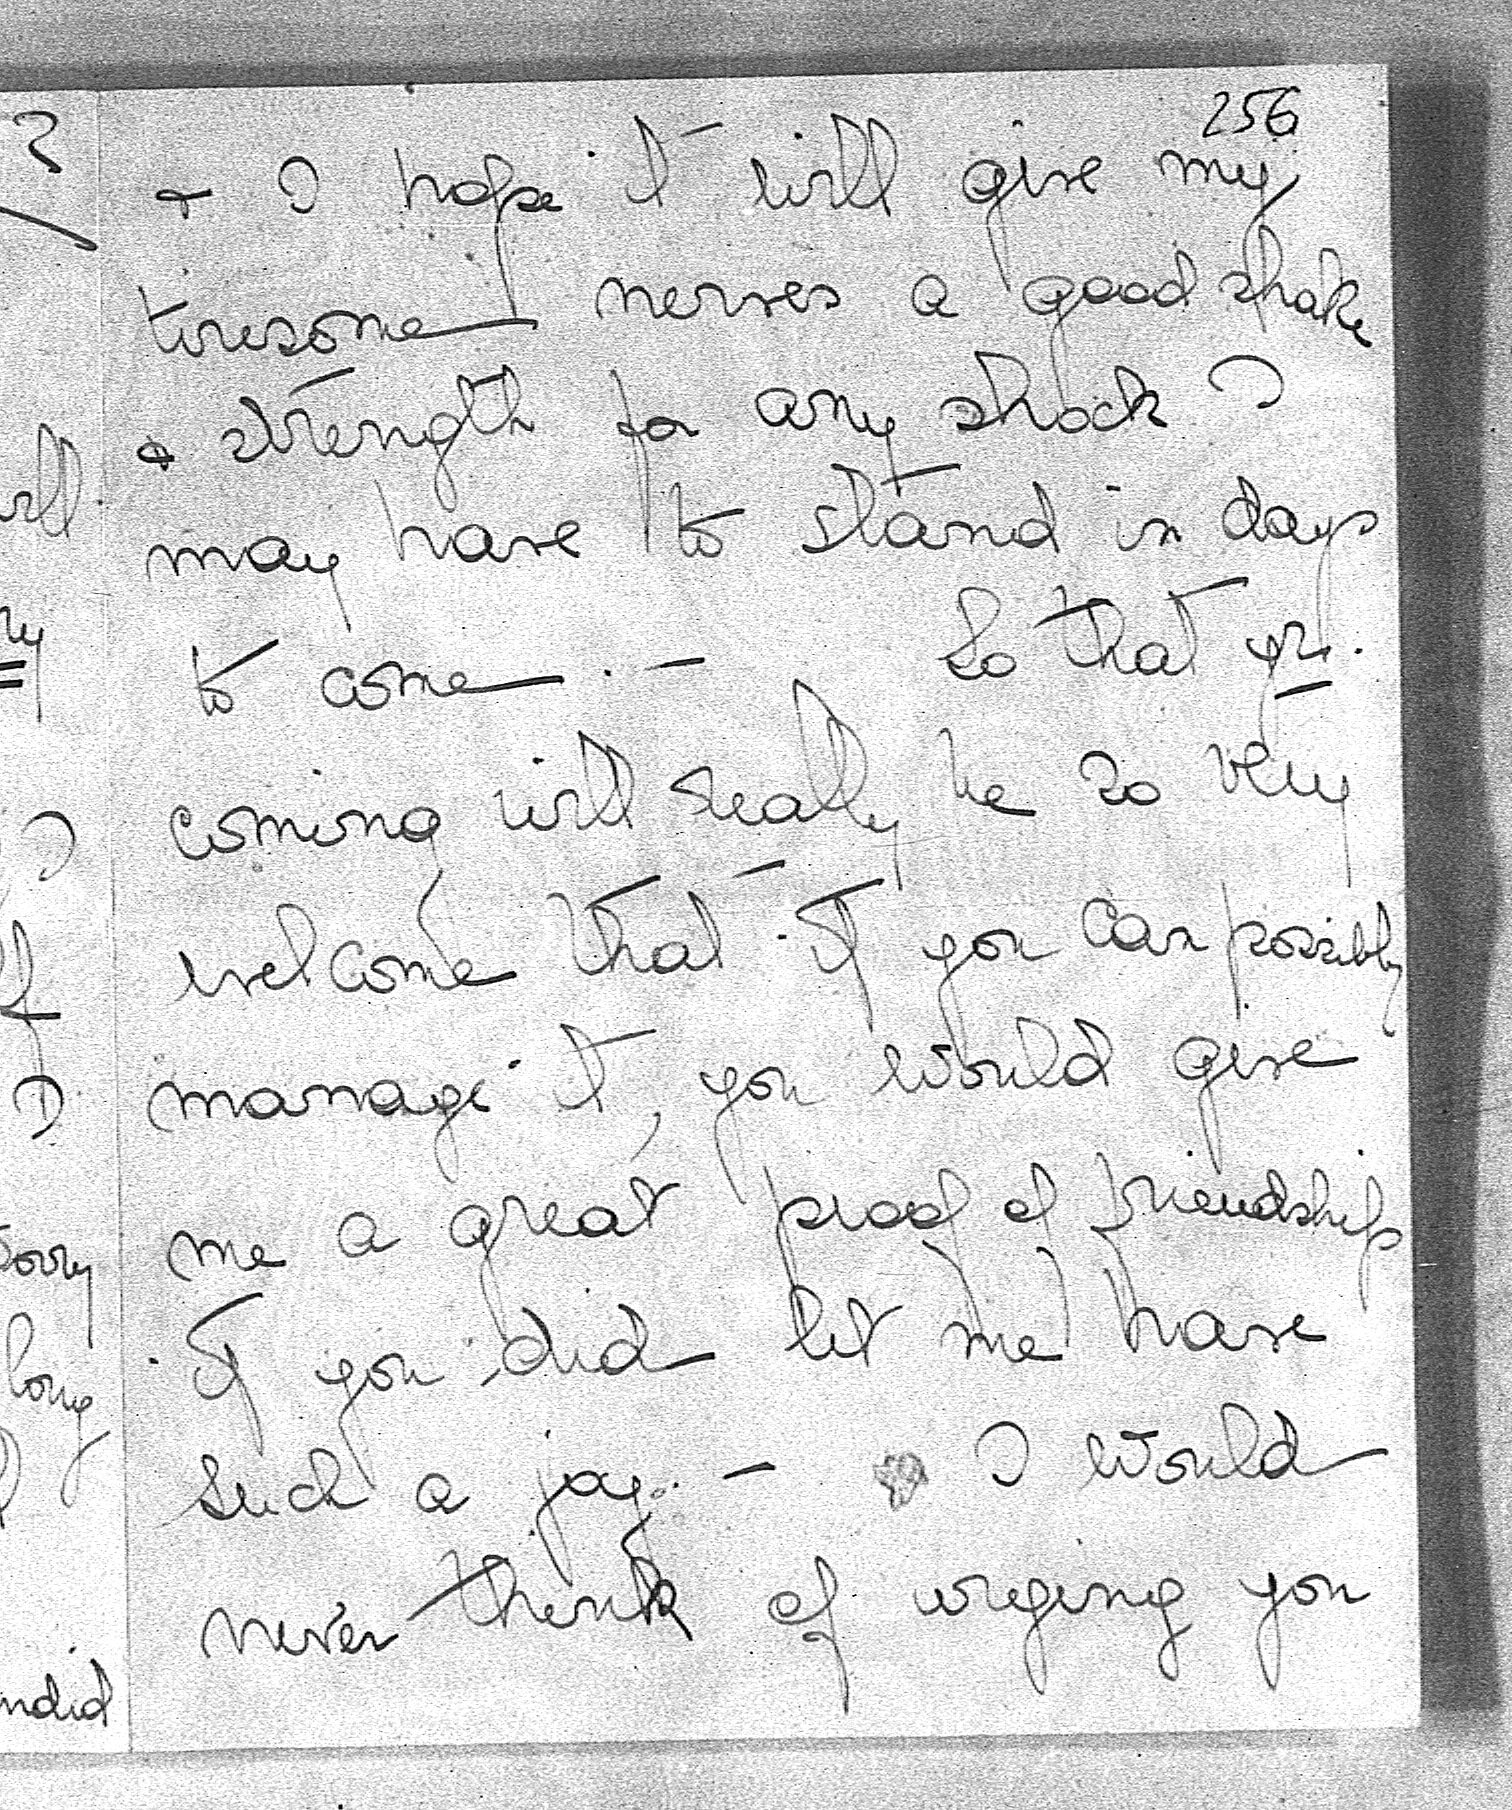 256
+ I hope it will give my
tiresome nerves a good shake
& strength for any shock I
may have to stand in days
to come. — So that yr.
coming will really be so very
welcome that if you can possibly
manage it, you would give
me a great proof of friendship
if you did let me have
such a joy. — I would
never think of urging you